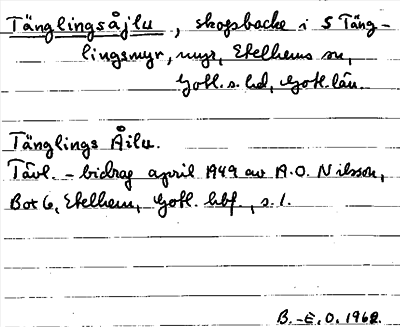 Tänglingsåjlu, skogsbacke i S Täng-
lingsmyr, myr, Etelhems sn,
Gotl. s. hd, Gotl. län.
Tänglings Åilu.
Tävl.-bidrag april 1949 av A.O. Nilsson,
Box 6, Etelhem, Gotl. hbf., s. 1.
B.-E. O. 1968.